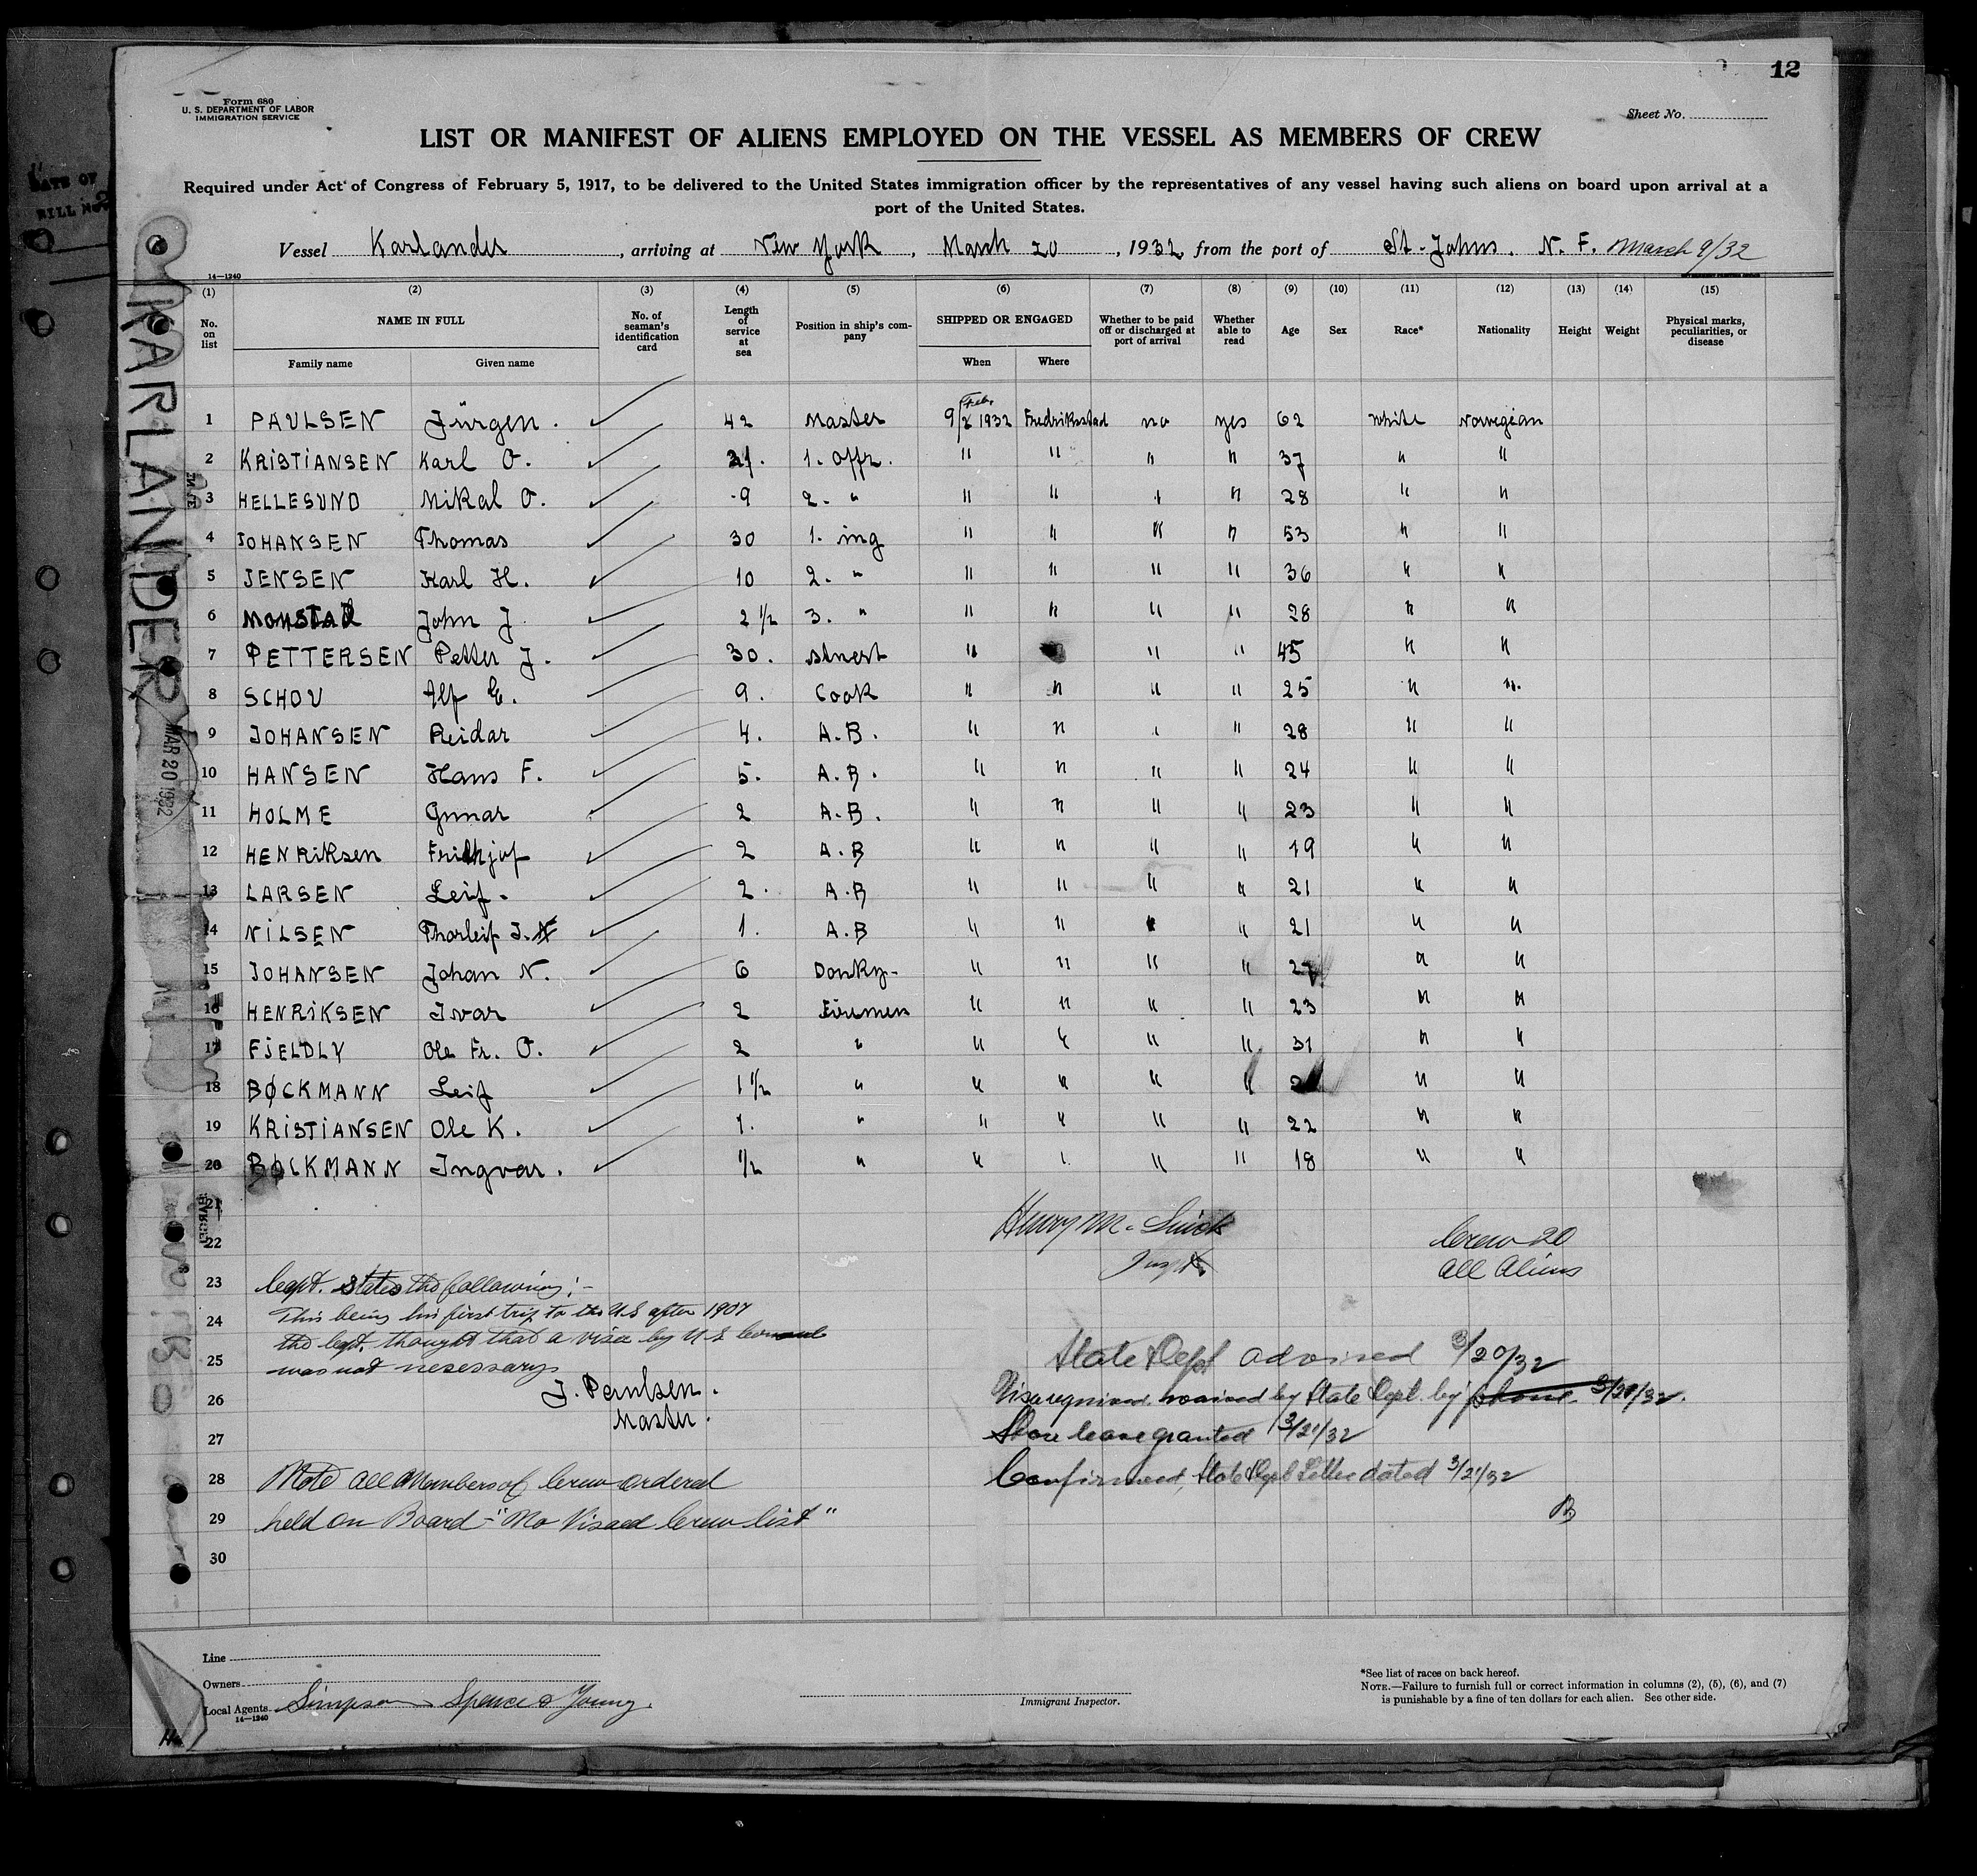 12
Form 680
U. S. DEPARTMENT OF LABOR
IMMIGRATION SERVICE
Sheet No.
LIST OR MANIFEST OF ALIENS EMPLOYED ON THE VESSEL AS MEMBERS OF CREW
Required under Act of Congress of February 5, 1917, to be delivered to the United States immigration officer by the representatives of any vessel having such aliens on board upon arrival at a
port of the United States.
Vessel Karlander, arriving at New York, March 20, 1932, from the port of St. Johns. N. F. March 9/32
14—1240
KARLANDER
MAR 20 1932
(1) (2) (3) (4) (5) (6) (7) (8) (9) (10) (11) (12) (13) (14) (15)
No. on list NAME IN FULL No. of seaman's identification card Length of service at sea Position in ship's company SHIPPED OR ENGAGED Whether to be paid off or discharged at port of arrival Whether able to read Age Sex Race* Nationality Height Weight Physical marks, peculiarities, or disease
Family name Given name When Where
1 PAULSEN Jürgen. 42 Master 9/2 Feb. 1932 Fredrikstad no yes 62 White Norwegian
2 KRISTIANSEN Karl O. 21. 1. offr. " " " " 37 " "
3 HELLESUND Mikal O. 9 2. " " " " " 28 " "
4 JOHANSEN Thomas 30 1. ing " " " " 53 " "
5 JENSEN Karl H. 10 2. " " " " " 36 " "
6 MONSTAD John J 2 1/2 3. " " " " " 28 " "
7 PETTERSEN Petter J. 30. " " " 45 " "
8 SCHOU Alf E. 9. Cook " " " " 25 " "
9 JOHANSEN Reidar 4. A.B. " " " " 28 " "
10 HANSEN Hans F. 5. A.B. " " " " 24 " "
11 HOLME Gunar 2 A.B. " " " " 23 " "
12 HENRIKSEN Frithjof 2 A.B " " " " 19 " "
13 LARSEN Leif. 2. A.B " " " " 21 " "
14 NILSEN Thorleif J. 1. A.B " " " " 21 " "
15 JOHANSEN Johan N. 6 Donky- " " " " " "
16 HENRIKSEN Ivar 2 Firemen " " " " 23 " "
17 FJELDLY Ole Fr. O. 2 " " " " " 31 " "
18 BØCKMANN Leif 1 1/2 " " " " " " "
19 KRISTIANSEN Ole K. 1. " " " " " 22 " "
20 BØCKMANN Ingvar. 1/2 " " " " " 18 " "
21
22
Henry M.
Inspt.
Crew 20
All Aliens
23 Capt. states the following:-
24 This being his first trip to the U.S after 1907
the Capt. thought that a visa by U S Consul
25 was not nesessary
26 J. Paulsen.
Master.
27
State Dept advised 3/20/32
Visa required waived by State Dept. by phone 3/21/32.
Shore leave granted 3/21/32
Confirmed, State Dept Letter dated 3/21/32
B
28 Note all Members of Crew ordered
29 held on Board - "No Visaed Crew list"
30
Line
Owners
Local Agents Simpson Spence & Young.
14—1240
Immigrant Inspector.
*See list of races on back hereof.
NOTE.—Failure to furnish full or correct information in columns (2), (5), (6), and (7)
is punishable by a fine of ten dollars for each alien. See other side.